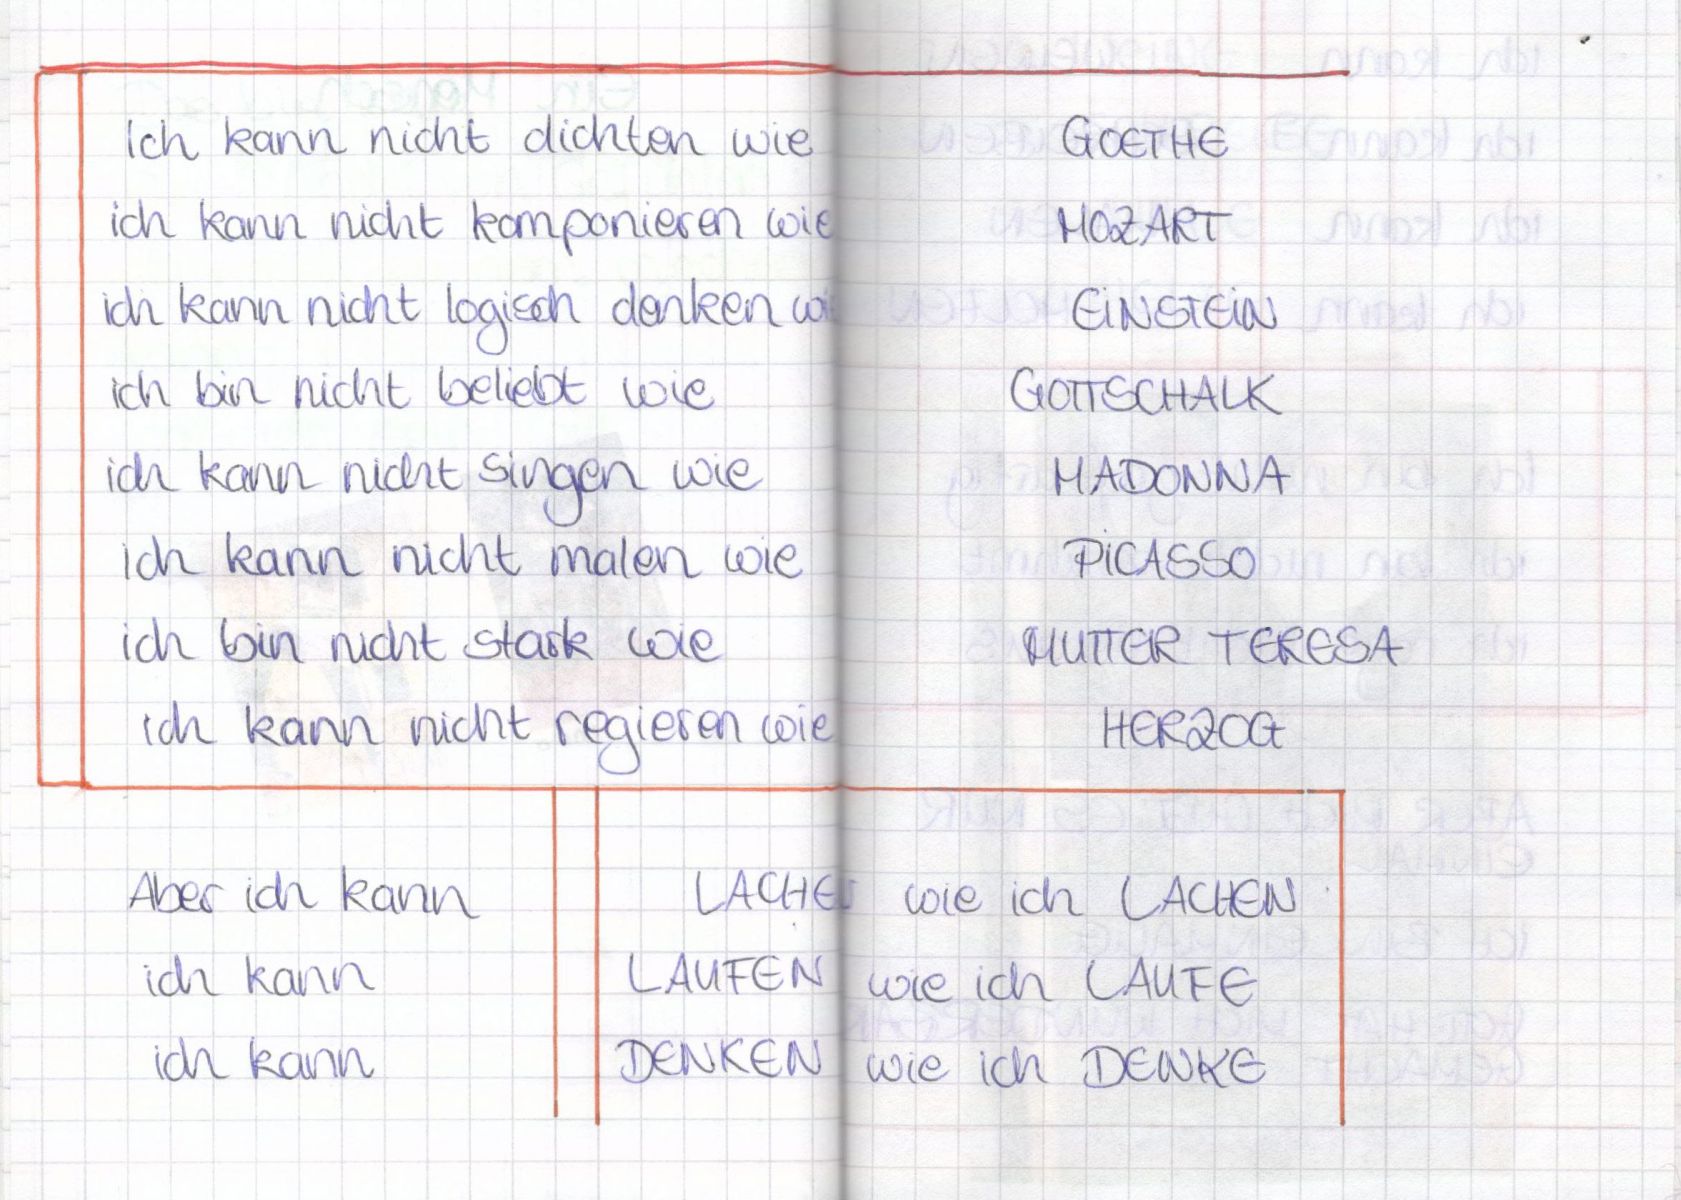 Ich kann nicht dichten wie GOETHE
ich kann nicht komponieren wie MOZART
ich kann nicht logisch denken wie EINSTEIN
ich bin nicht beliebt wie GOTTSCHALK
ich kann nicht singen wie MADONNA
ich kann nicht malen wie PICASSO
ich bin nicht stark wie MUTTER TERESA
ich kann nicht regieren wie HERZOG
Aber ich kann LACHEN wie ich LACHEN
ich kann LAUFEN wie ich LAUFE
ich kann DENKEN wie ich DENKE